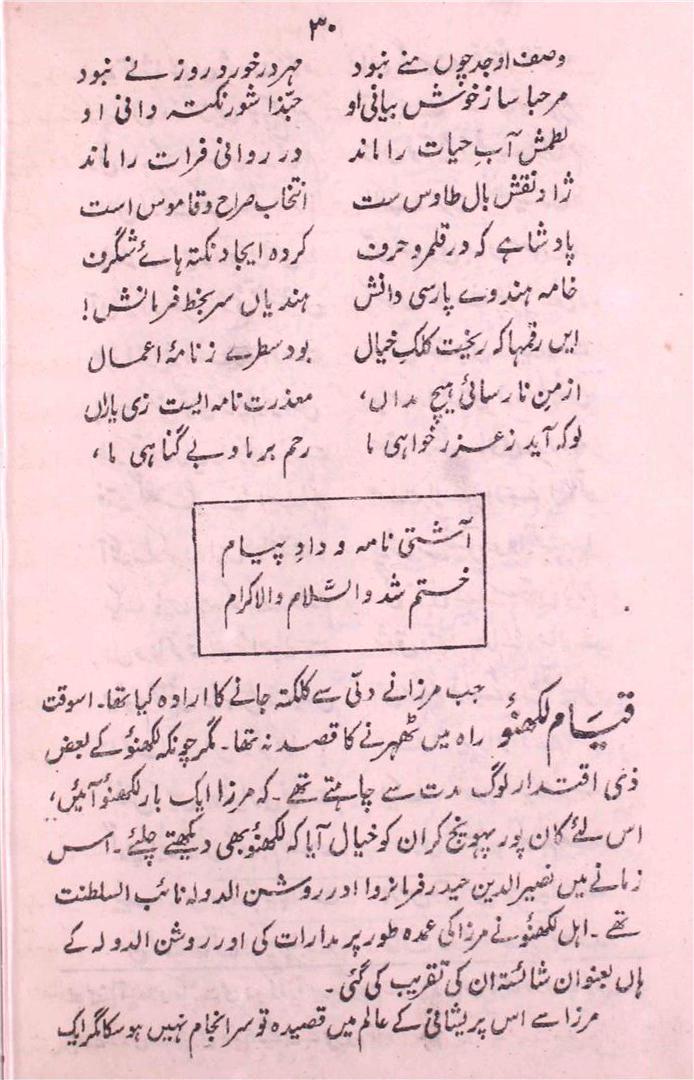 ۳۰
وصف او جد چوں منے نبود مہر در خورد روزنے نبود
مرحبا ساز خوش بیانی او حبّذا شور نکتہ دانی او
نطمش آبِ حیات را ماند در روانی فرات را ماند
ژاد نقش بال طاوس ست انتخاب صراح و قاموس است
پادشاہے کہ در قلمرو حرف کردہ ایجاد نکتہ ہائے شگرف
خامہ ہندوے پارسی دانش ہندیاں سر بخط فرمانش!
ایں رقمہا کہ ریخت کلکِ خیال بود سطرے ز نامۂ اعمال
از منِ نا رسائی ہیچ مداں، معذرت نامہ ایست زی یاراں
لو کہ آید ز عذر خواہی ما رحم بر ما و بے گناہی ما،
آشتی نامہ و دادِ پیام
ختم شُد والسَّلام والاکرام
قیام لکھنؤ جب مرزا نے دلّی سے کلکتہ جانے کا ارادہ کیا تھا۔ اسوقت
راہ میں ٹھہرنے کا قصد نہ تھا۔ مگر چونکہ لکھنؤ کے بعض
ذی اقتدار لوگ مدت سے چاہتے تھے۔ کہ مرزا ایک بار لکھنؤ آئیں،
اس لئے کان پور پہونچ کر ان کو خیال آیا کہ لکھنؤ بھی دیکھتے چلئے۔ اس
زمانے میں نصیر الدین حیدر فرمانروا اور روشن الدولہ نائب السلطنت
تھے۔ اہل لکھنؤ نے مرزا کی عمدہ طور پر مدارات کی اور روشن الدولہ کے
ہاں بعنوان شائستہ ان کی تقریب کی گئی۔
مرزا سے اس پریشانی کے عالم میں قصیدہ تو سر انجام نہیں ہو سکا مگر ایک